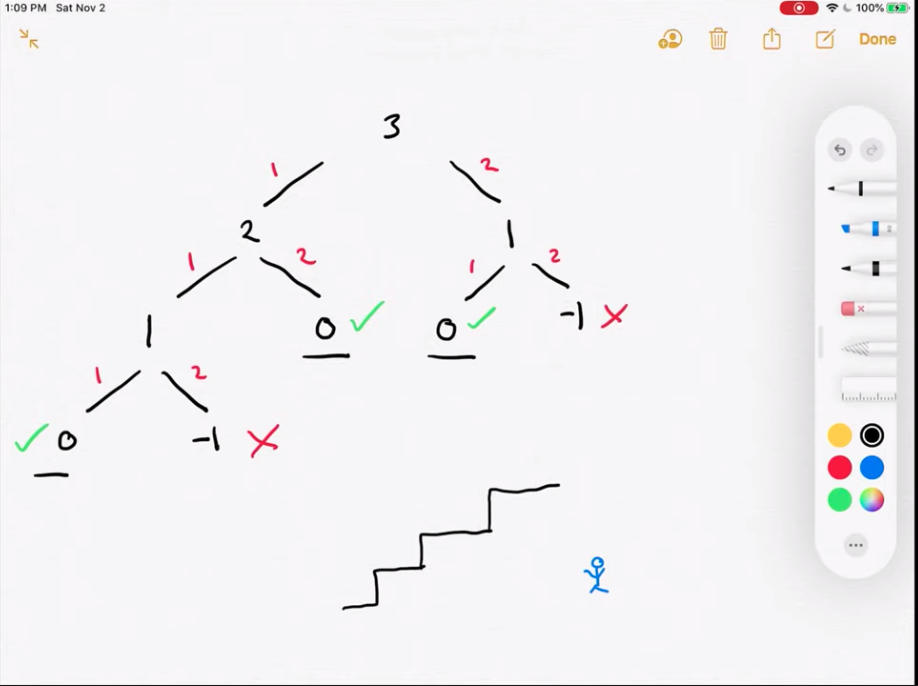 1:09 PM Sat Nov 2
100%
Done
3
1 2
2 1
1 2 1 2
1 0 ✓ 0 ✓ -1 ✗
1 2
✓ 0 -1 ✗